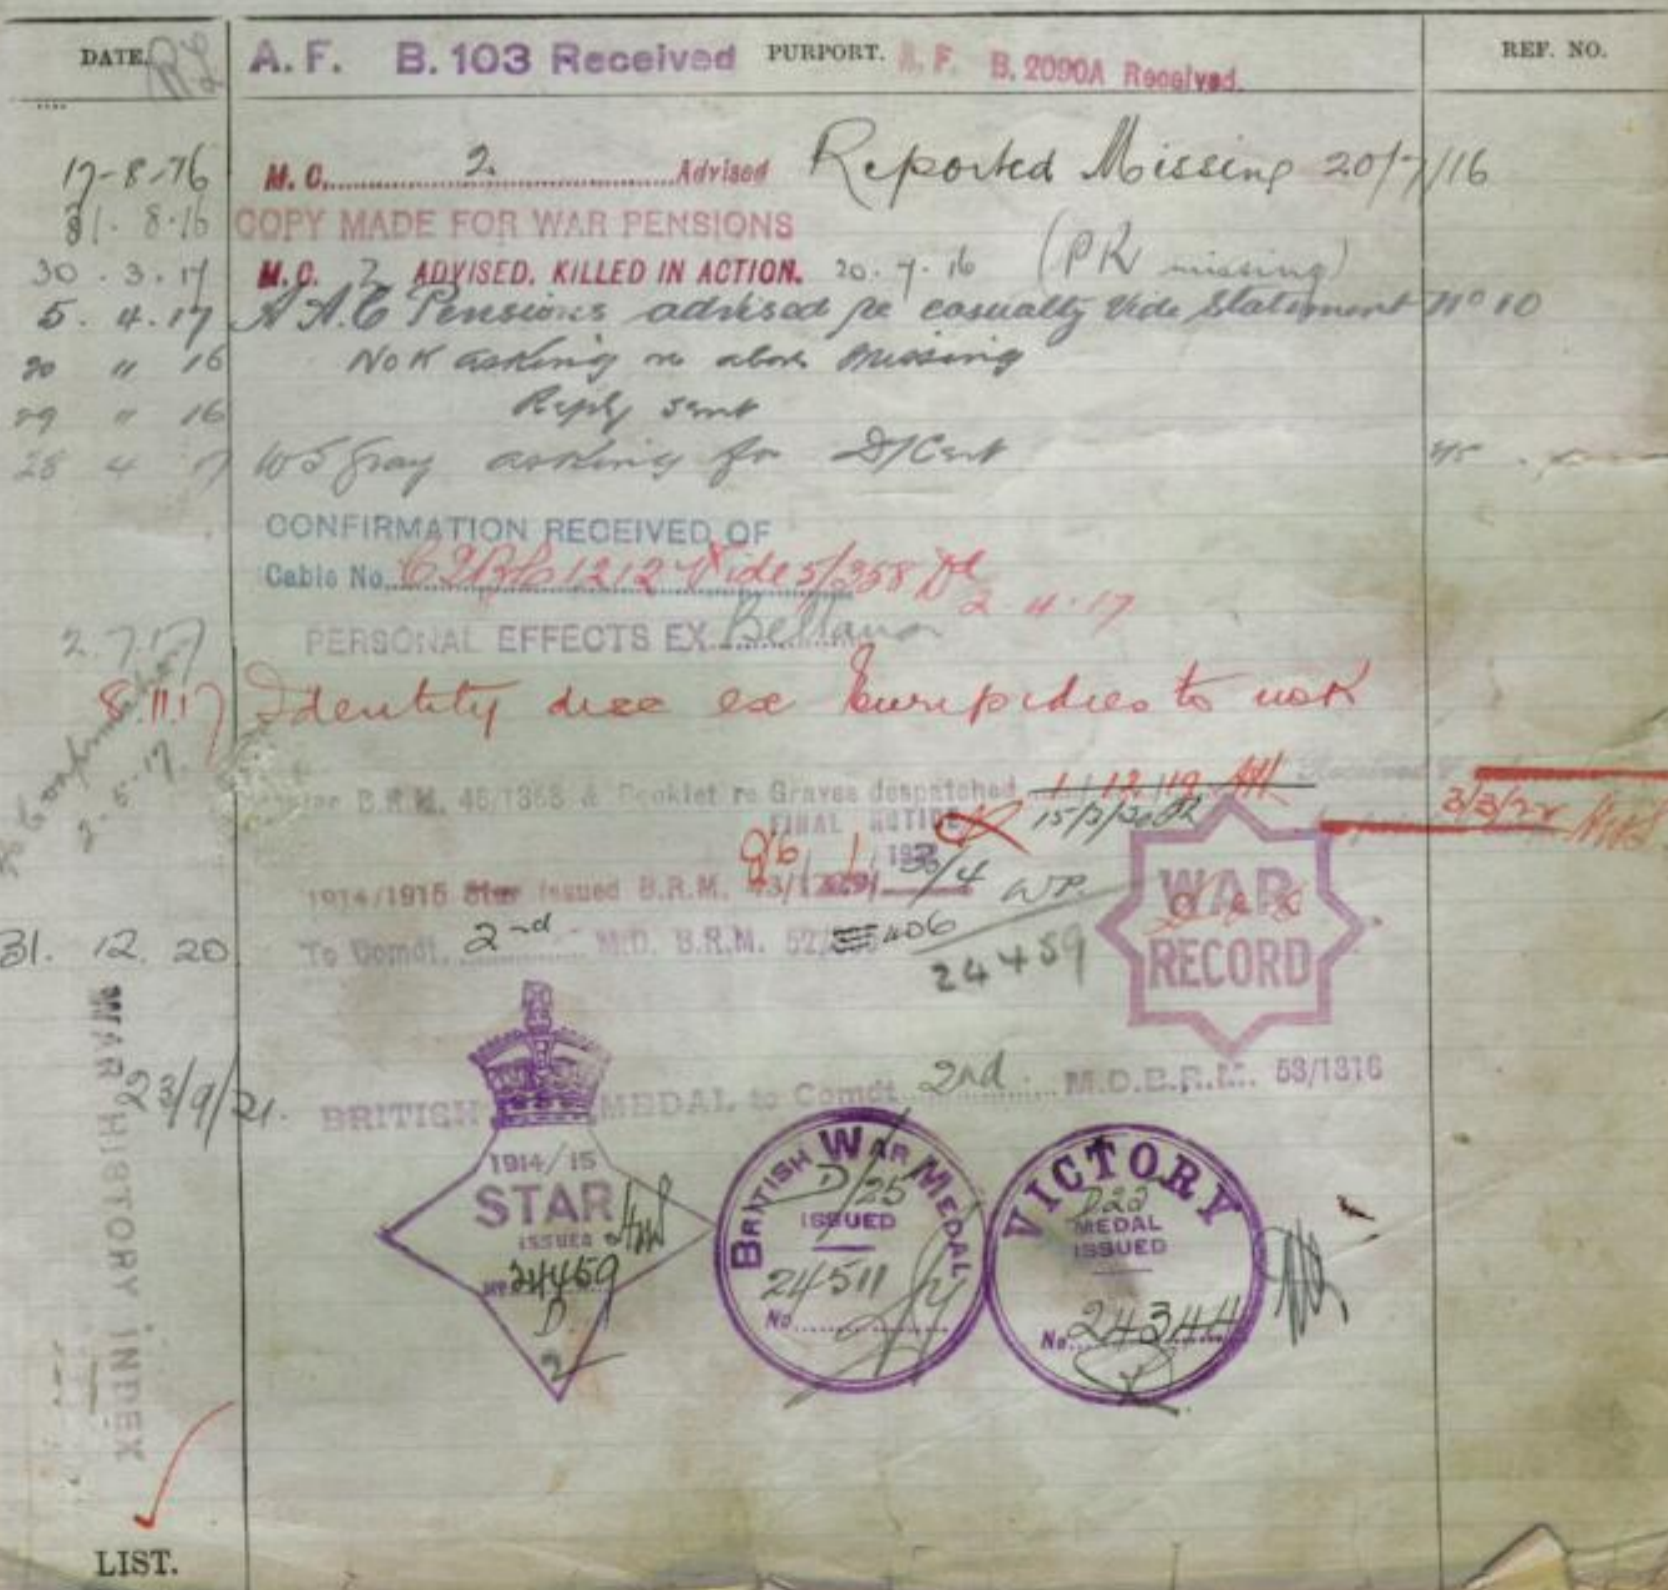 DATE. A.F. B.103 Received PURPORT. A.F. B.2090A Received. REF. NO.
17-8-16 M.C. 2. Advised Reported Missing 20/7/16
31. 8.16 COPY MADE FOR WAR PENSIONS
30.3.17 M.C. 2 ADVISED. KILLED IN ACTION. 20.7.16 (PR missing)
5. 4.17 Pensions advised re casualty Vide Statement No 10
20 " 16 NoK asking re above missing
29 " 16 Reply sent
28 4 7 W S Gray asking for D/Cert
CONFIRMATION RECEIVED OF
Cable No. 1212 Vide 5/358
2.4.17
2.7.17 PERSONAL EFFECTS EX
8.11.17 Identity disc ex Euripides to nok
B.R.M. 46/1368 & Booklet re Graves despatched 1/12/19
FINAL NOTICE 15/3/20
3/3/22
1914/1915 Star issued B.R.M. 3/4 WP.
31. 12. 20 To Comdt. 2nd M.D. B.R.M. 52/ 406
24459
WAR
RECORD
23/9/21. BRITISH MEDAL to Comdt 2nd M.D.B.R.M. 53/1316
1914/15
STAR
ISSUED
No 24459
D
2
BRITISH WAR MEDAL
D/25
ISSUED
24511
No
VICTORY
D22
MEDAL
ISSUED
No. 24344
WAR HISTORY INDEX
LIST.